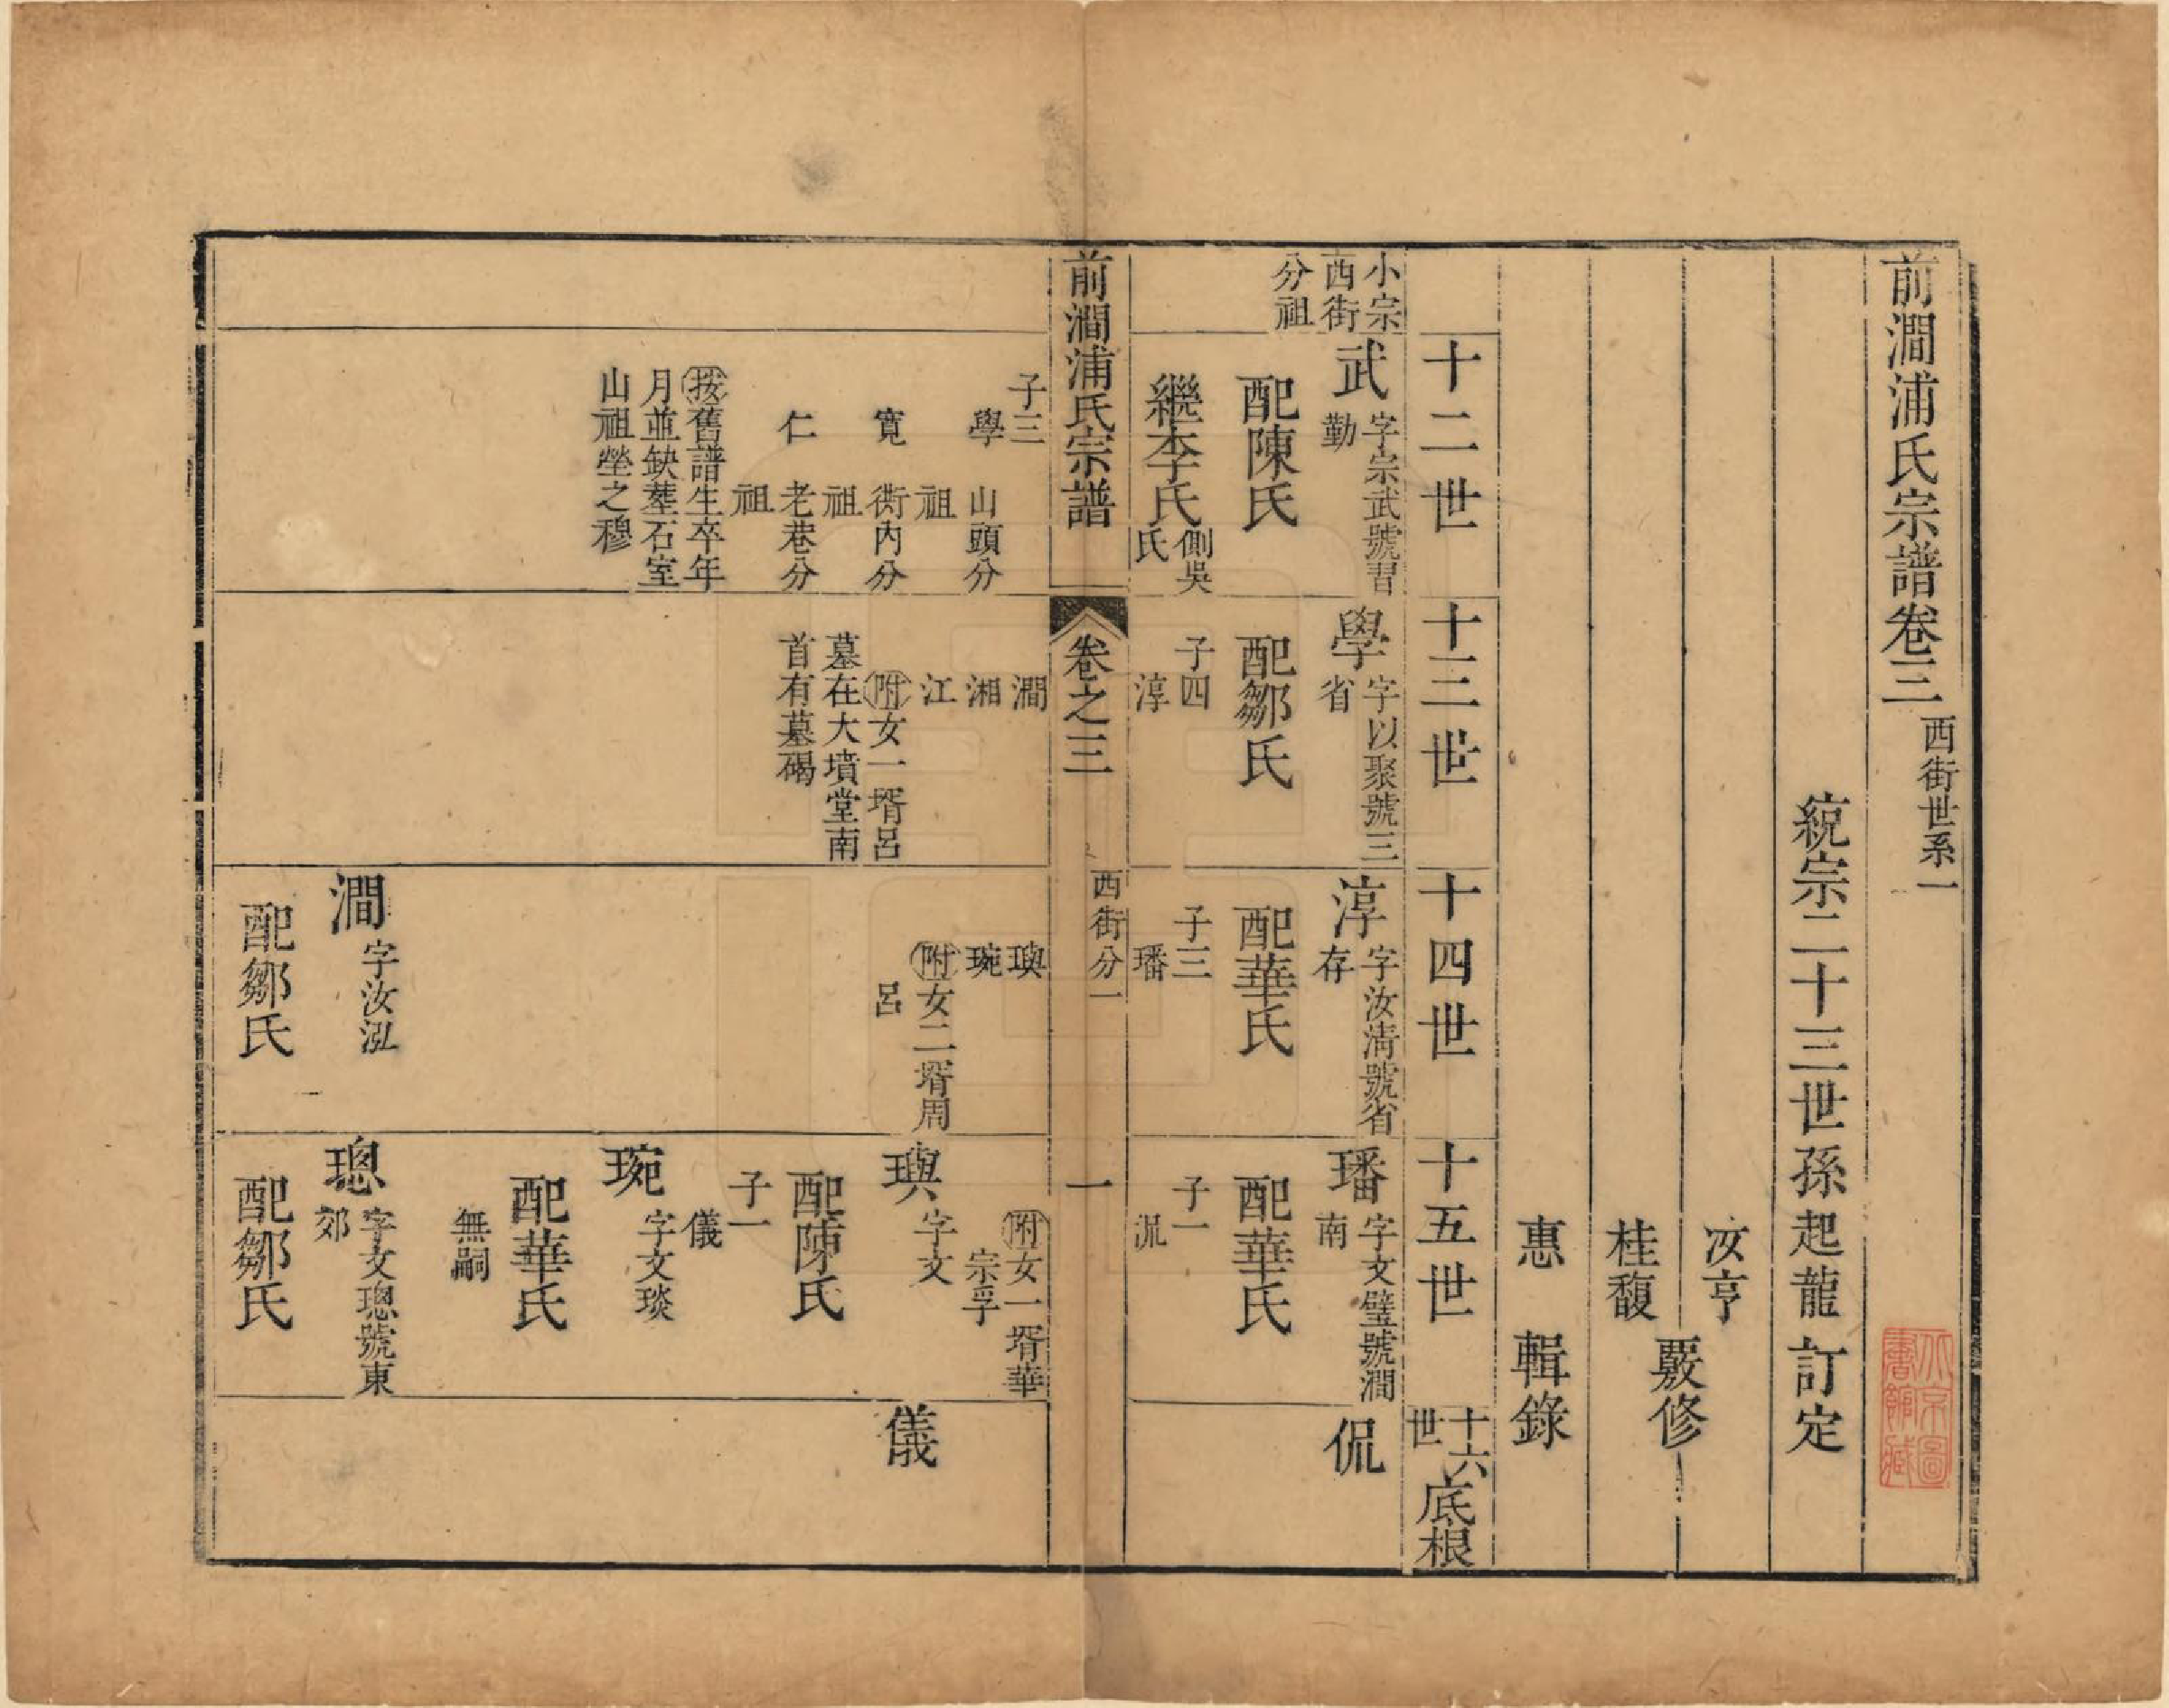 前澗浦氏宗譜卷三
西街世系一
綂宗二十三世孫起龍訂定
汝亨
桂馥
覈修
惠 輯錄
十二世
十三世
十四世
十五世
十六世
底根
小宗
西街
分祖
武
字宗武號習
勤
配陳氏
繼李氏
側吳
氏
學
字以聚號三
省
配鄒氏
子四
淳
淳
字汝淸號省
存
配華氏
子三
璠
璠
字文璧號澗
南
配華氏
子一
侃
侃
前澗浦氏宗譜
卷之三
西街分一
一
子三
學 山頭分
祖
寬 衖內分
祖
仁 老巷分
祖
按舊譜生卒年
月並缺葬石室
山祖塋之穆
澗
湘
江
附女一壻呂
墓在大墳堂南
首有墓碣
璵
琬
附女二壻周
呂
澗
字汝泓
配鄒氏
附女一壻華
宗孚
璵
字文
配陳氏
子一
儀
琬
字文琰
配華氏
無嗣
璁
字文璁號東
郊
配鄒氏
儀
北京圖
書館藏